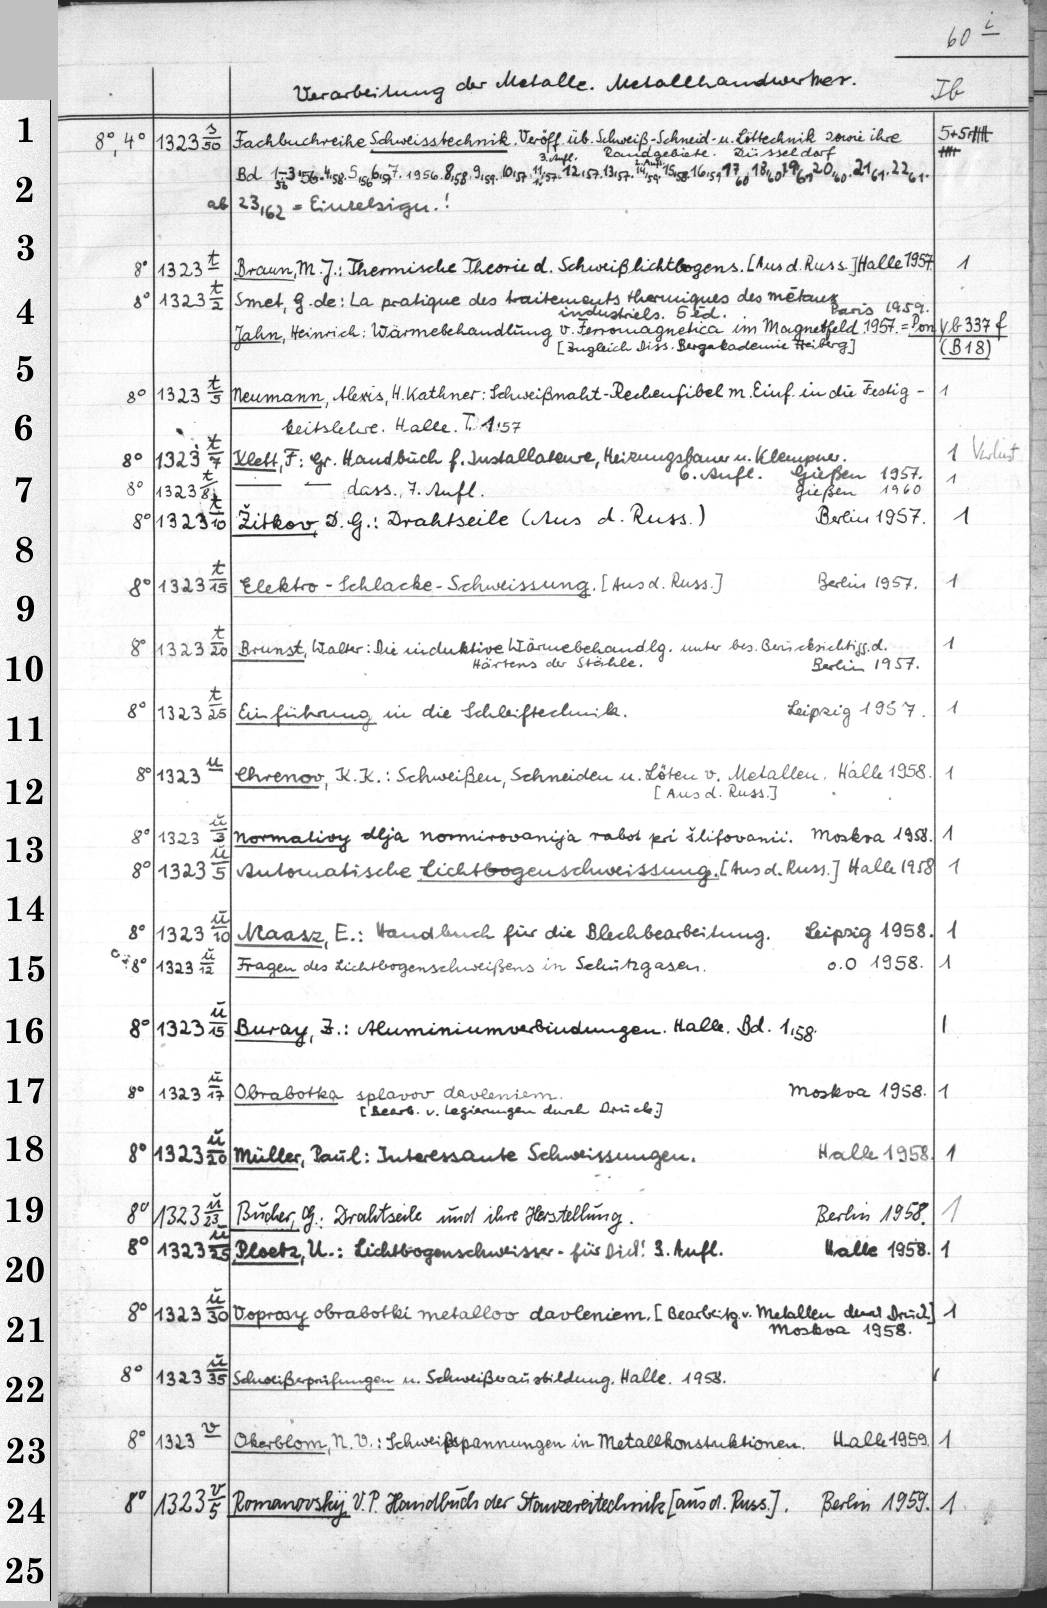 60 i
Verarbeitung der Metalle. Metallhandwerker. Ib
1
8°, 4° 1323 s/50 Fachbuchreihe Schweisstechnik. Veröff. üb. Schweiß-Schneid- u. Löttechnik sowie ihre 5+5+
Randgebiete. Düsseldorf
3. Aufl.
2
ab 23,62 = Einzelsign.!
3
8° 1323 t Braun, M. J.: Thermische Theorie d. Schweißlichtbogens. [Aus d. Russ.] Halle 1957 1
4
8° 1323 t/2 Smet, G. de: La pratique des traitements thermiques des métaux
industriels. 5 éd. Paris 1959.
Jahn, Heinrich: Wärmebehandlung v. Ferromagnetica im Magnetfeld 1957. = Pon Vb 337 f
[Zugleich Diss. Bergakademie Freiberg] (B18)
5
8° 1323 t/5 Neumann, Alexis, H. Kathner: Schweißnaht-Rechenfibel m. Einf. in die Festig- 1
6
keitslehre. Halle. T. 1.57
8° 1323 t/7 Klett, F: Gr. Handbuch f. Installateure, Heizungsbauer u. Klempner. 1 Verlust
6. Aufl. Gießen 1957.
7
8° 1323 t/8 — — dass., 7. Aufl. Gießen 1960 1
8° 1323 t/10 Žitkov, D. G.: Drahtseile (Aus d. Russ.) Berlin 1957. 1
8
8° 1323 t/15 Elektro-Schlacke-Schweissung. [Aus d. Russ.] Berlin 1957. 1
9
8° 1323 t/20 Brunst, Walter: Die induktive Wärmebehandlg. unter bes. Berücksichtigg. d. 1
10
Härtens der Stähle. Berlin 1957.
8° 1323 t/25 Einführung in die Schleiftechnik. Leipzig 1957. 1
11
8° 1323 u Chrenov, K. K.: Schweißen, Schneiden u. Löten v. Metallen. Halle 1958. 1
12
[Aus d. Russ.]
8° 1323 u/3 Normativy dlja normirovanija rabot pri šlifovanii. Moskva 1958. 1
13
8° 1323 u/5 Automatische Lichtbogenschweissung. [Aus d. Russ.] Halle 1958 1
14
8° 1323 u/10 Maasz, E.: Handbuch für die Blechbearbeitung. Leipzig 1958. 1
15
8° 1323 u/12 Fragen des Lichtbogenschweißens in Schutzgasen. o.O 1958. 1
16
8° 1323 u/15 Buray, Z.: Aluminiumverbindungen. Halle. Bd. 1,58. 1
17
8° 1323 u/17 Obrabotka splavov davleniem. Moskva 1958. 1
[Bearb. v. Legierungen durch Druck]
18
8° 1323 u/20 Müller, Paul: Interessante Schweissungen. Halle 1958. 1
19
8° 1323 u/23 Bücher, G.: Drahtseile und ihre Herstellung. Berlin 1958. 1
8° 1323 u/25 Ploetz, U.: Lichtbogenschweisser - für Dich! 3. Aufl. Halle 1958. 1
20
8° 1323 u/30 Voprosy obrabotki metallov davleniem. [Bearbeitg. v. Metallen durch Druck] 1
21
Moskva 1958.
8° 1323 u/35 Schweißerprüfungen u. Schweißerausbildung. Halle. 1958. 1
22
8° 1323 v Okerblom, N. O.: Schweißspannungen in Metallkonstruktionen. Halle 1959. 1
23
8° 1323 v/5 Romanovskij V. P. Handbuch der Stanzereitechnik [aus d. Russ.]. Berlin 1959. 1
24
25